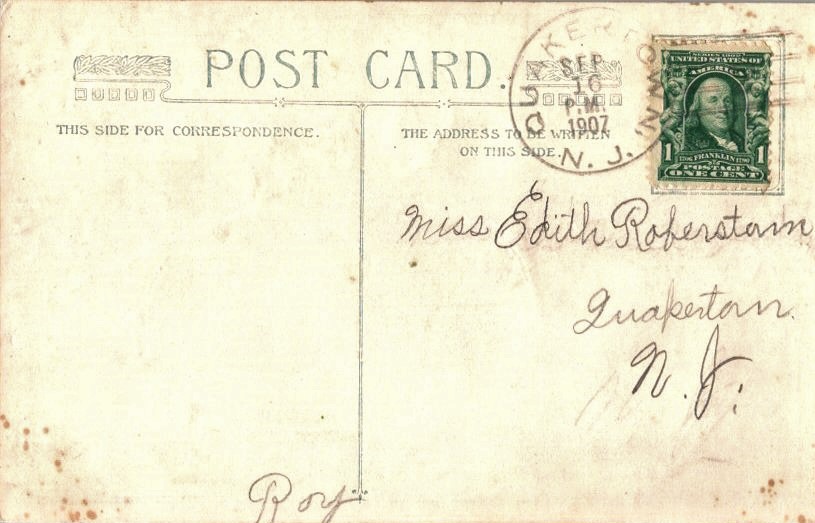 POST CARD.
THIS SIDE FOR CORRESPONDENCE.
THE ADDRESS TO BE WRITTEN
ON THIS SIDE.
QUAKERTOWN
SEP
16
P.M.
1907
N. J.
SERIES 1902
UNITED STATES OF
AMERICA
1 1706 FRANKLIN 1790 1
POSTAGE
ONE CENT
Miss Edith
Quakertown.
N. J.
Roy